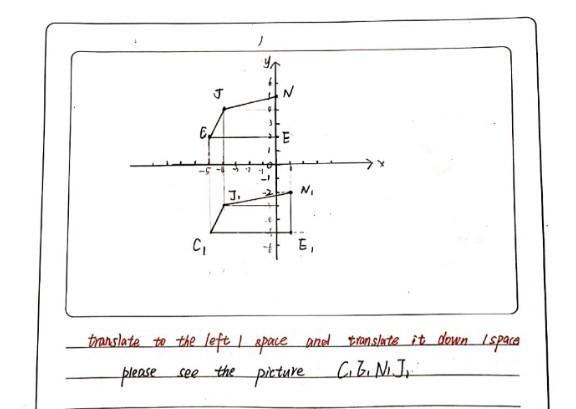 y
6
J
N
4
3
2
E
1
0
x
-5 -4
-1
-2
J₁
N₁
C₁
E₁
translate to the left 1 space and translate it down 1 space
please see the picture C₁ E₁ N₁ J₁